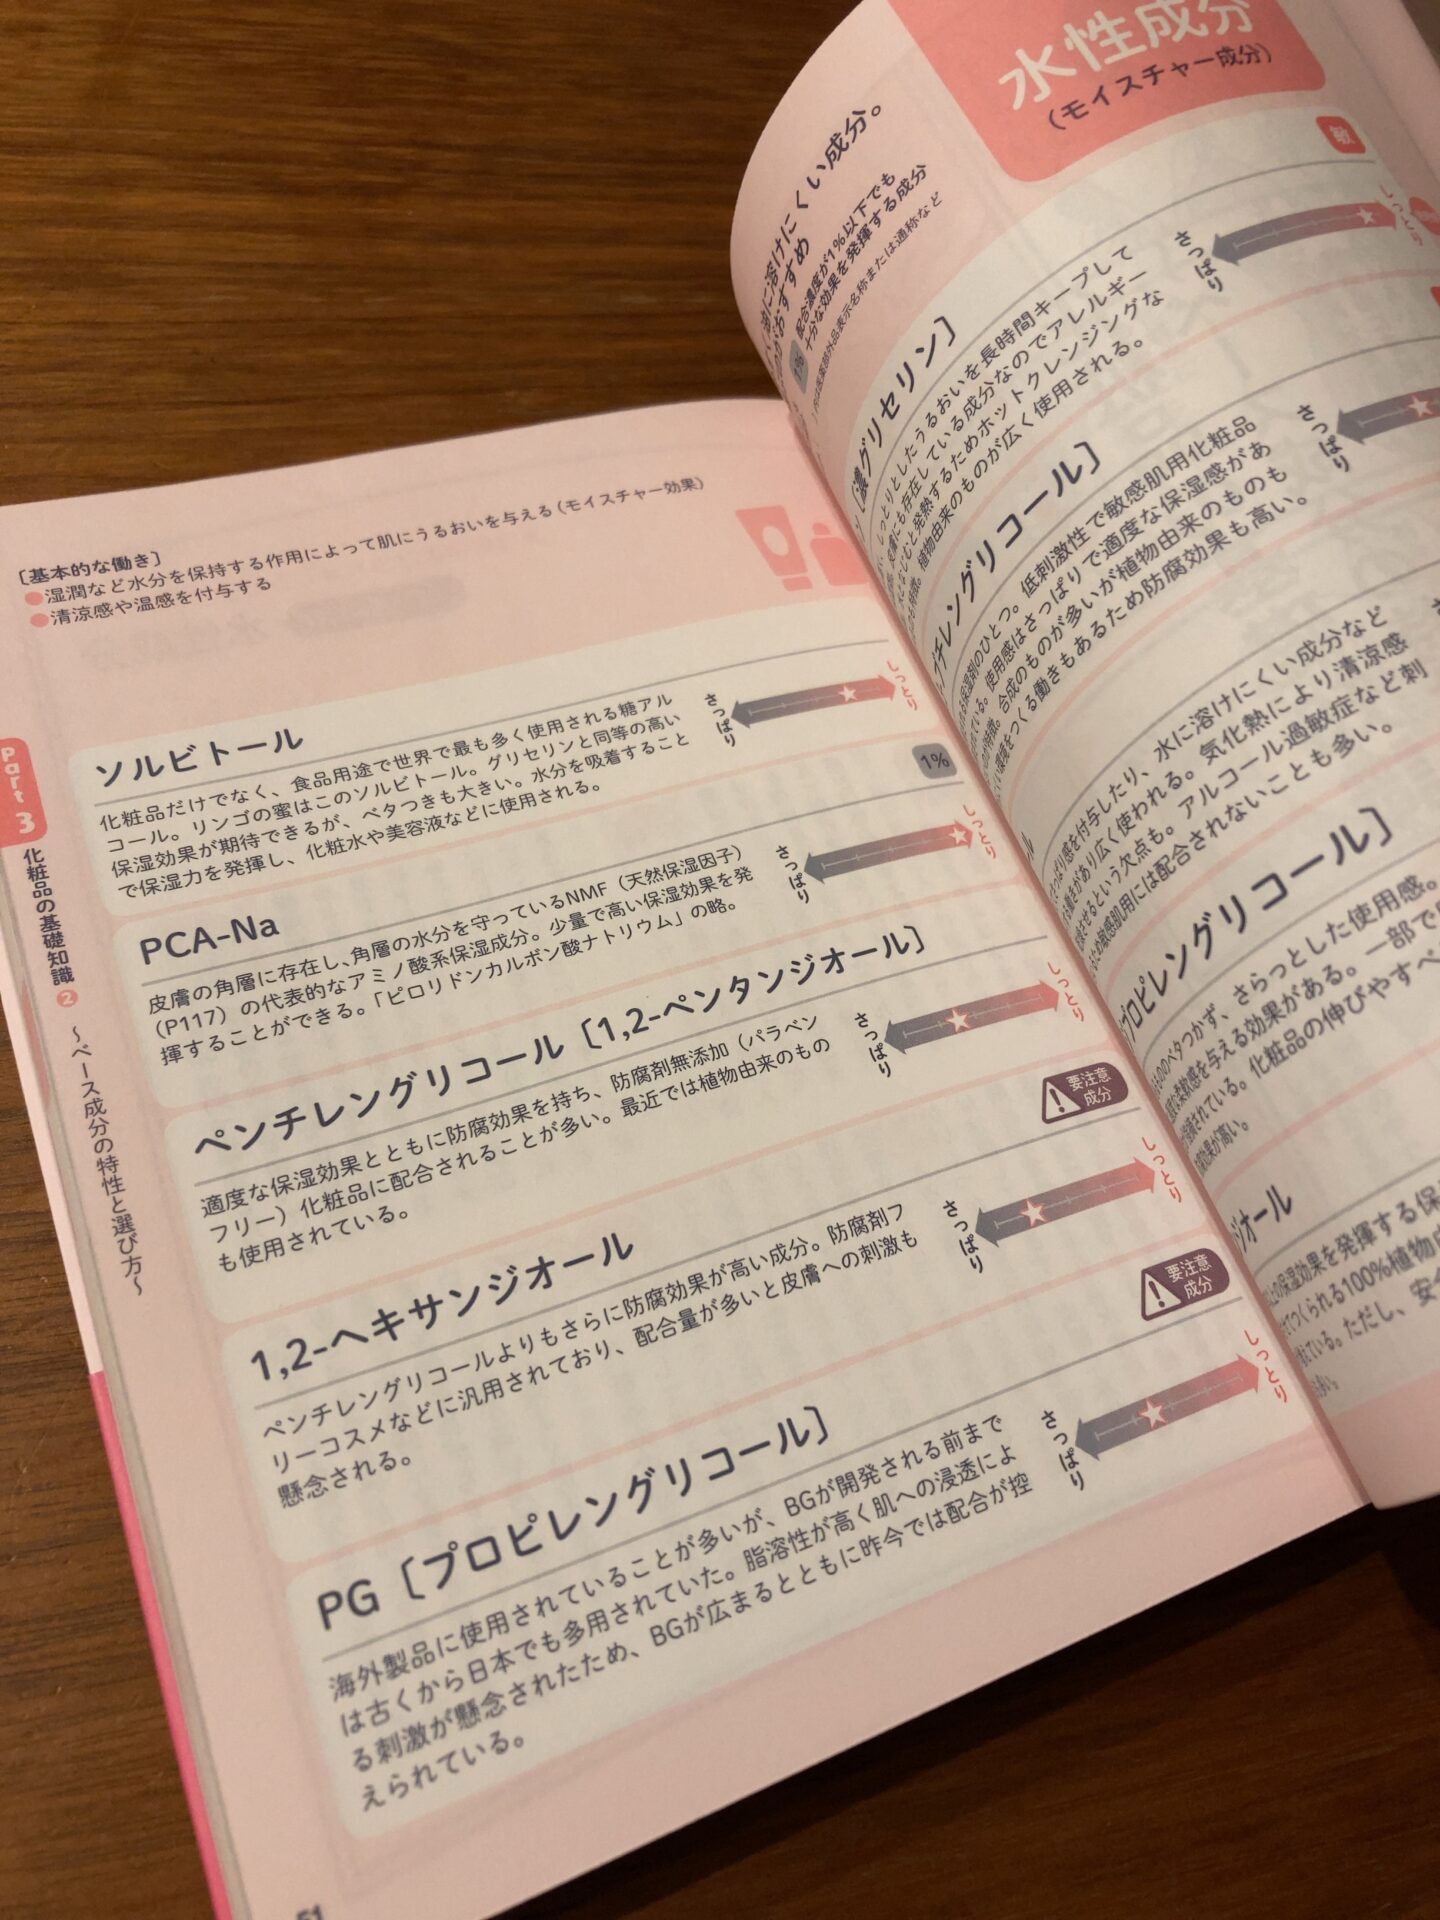 [基本的な働き]
●湿潤など水分を保持する作用によって肌にうるおいを与える(モイスチャー効果)
●清涼感や温感を付与する
ソルビトール
化粧品だけでなく、食品用途で世界で最も多く使用される糖アル
コール。リンゴの蜜はこのソルビトール。グリセリンと同等の高い
保湿効果が期待できるが、ベタつきも大きい。水分を吸着すること
で保湿力を発揮し、化粧水や美容液などに使用される。
さっぱり
しっとり
1%
PCA-Na
皮膚の角層に存在し、角層の水分を守っているNMF(天然保湿因子)
(P117)の代表的なアミノ酸系保湿成分。少量で高い保湿効果を発
揮することができる。「ピロリドンカルボン酸ナトリウム」の略。
さっぱり
しっとり
ペンチレングリコール〔1,2-ペンタンジオール〕
適度な保湿効果とともに防腐効果を持ち、防腐剤無添加(パラベン
フリー)化粧品に配合されることが多い。最近では植物由来のもの
も使用されている。
さっぱり
しっとり
要注意
成分
1,2-ヘキサンジオール
ペンチレングリコールよりもさらに防腐効果が高い成分。防腐剤フ
リーコスメなどに汎用されており、配合量が多いと皮膚への刺激も
懸念される。
さっぱり
しっとり
要注意
成分
PG〔プロピレングリコール〕
海外製品に使用されていることが多いが、BGが開発される前まで
は古くから日本でも多用されていた。脂溶性が高く肌への浸透によ
る刺激が懸念されたため、BGが広まるとともに昨今では配合が控
えられている。
さっぱり
しっとり
Part 3
化粧品の基礎知識❷ ～ベース成分の特性と選び方～
51
水性成分
(モイスチャー成分)
に溶けにくい成分。
おすすめ
配合濃度が1%以下でも
十分な効果を発揮する成分
表示名称または通称など
敏
グリセリン〕
しっとりとしたうるおいを長時間キープして
皮膚にも存在している成分なのでアレルギー
発熱するためホットクレンジングな
植物由来のものが広く使用される。
さっぱり
しっとり
チレングリコール〕
保湿剤のひとつ。低刺激性で敏感肌用化粧品
ている。使用感はさっぱりで適度な保湿感があ
の特徴。合成のものが多いが植物由来のものも
環境をつくる働きもあるため防腐効果も高い。
さっぱり
っぱり感を付与したり、水に溶けにくい成分など
働きがあり広く使われる。気化熱により清涼感
させるという欠点も。アルコール過敏症など刺
敏感肌用には配合されないことも多い。
プロピレングリコール〕
ベタつかず、さらっとした使用感。
柔軟感を与える効果がある。一部で
されている。化粧品の伸びやすべ
効果が高い。
ジオール
保湿効果を発揮する保
つくられる100%植物由
ている。ただし、安